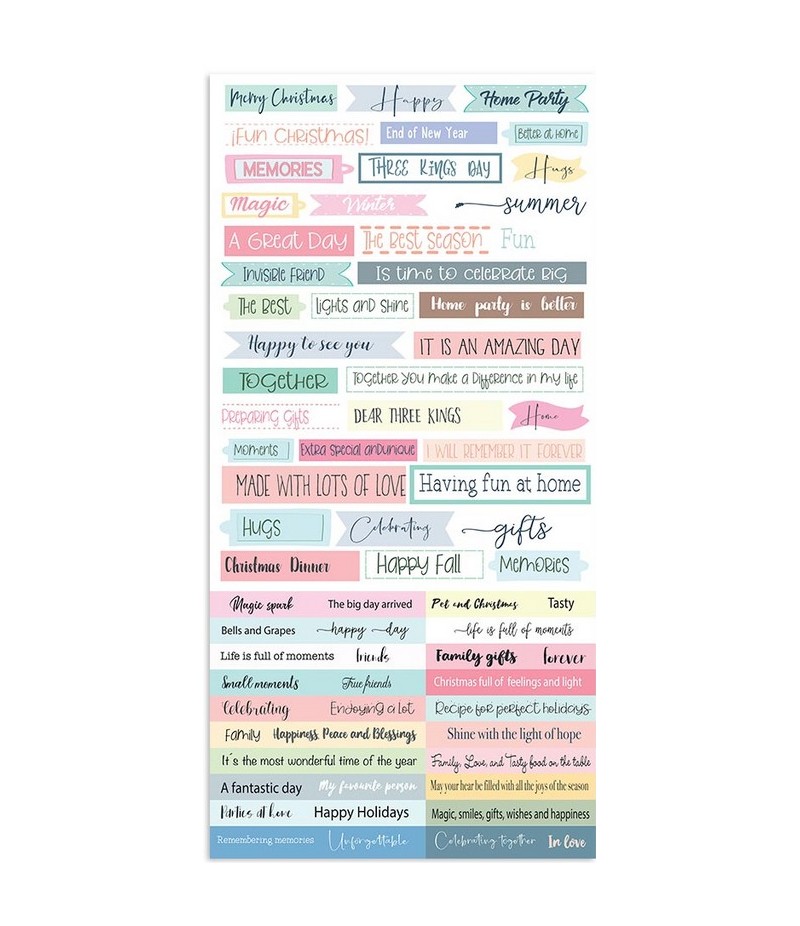 Merry Christmas Happy Home Party
¡Fun Christmas! End of New Year Better at home
MEMORIES THREE KINGS DAY Hugs
Magic Winter summer
A Great Day The Best Season Fun
Invisible Friend Is time to celebrate big
The Best Lights and Shine Home party is better
Happy to see you IT IS AN AMAZING DAY
Together Together you make a difference in my life
Preparing Gifts DEAR THREE KINGS Home
Moments Extra Special andunique I WILL REMEMBER IT FOREVER
MADE WITH LOTS OF LOVE Having fun at home
HUGS Celebrating gifts
Christmas Dinner Happy Fall Memories
Magic spark The big day arrived Pet and Christmas Tasty
Bells and Grapes happy day life is full of moments
Life is full of moments friends Family gifts forever
Small moments True friends Christmas full of feelings and light
Celebrating Enjoying a lot Recipe for perfect holidays
Family Happiness, Peace and Blessings Shine with the light of hope
It´s the most wonderful time of the year Family, Love, and Tasty food on the table
A fantastic day My favourite person May your hear be filled with all the joys of the season
Parties at home Happy Holidays Magic, smiles, gifts, wishes and happiness
Remembering memories Unforgettable Celebrating together In love